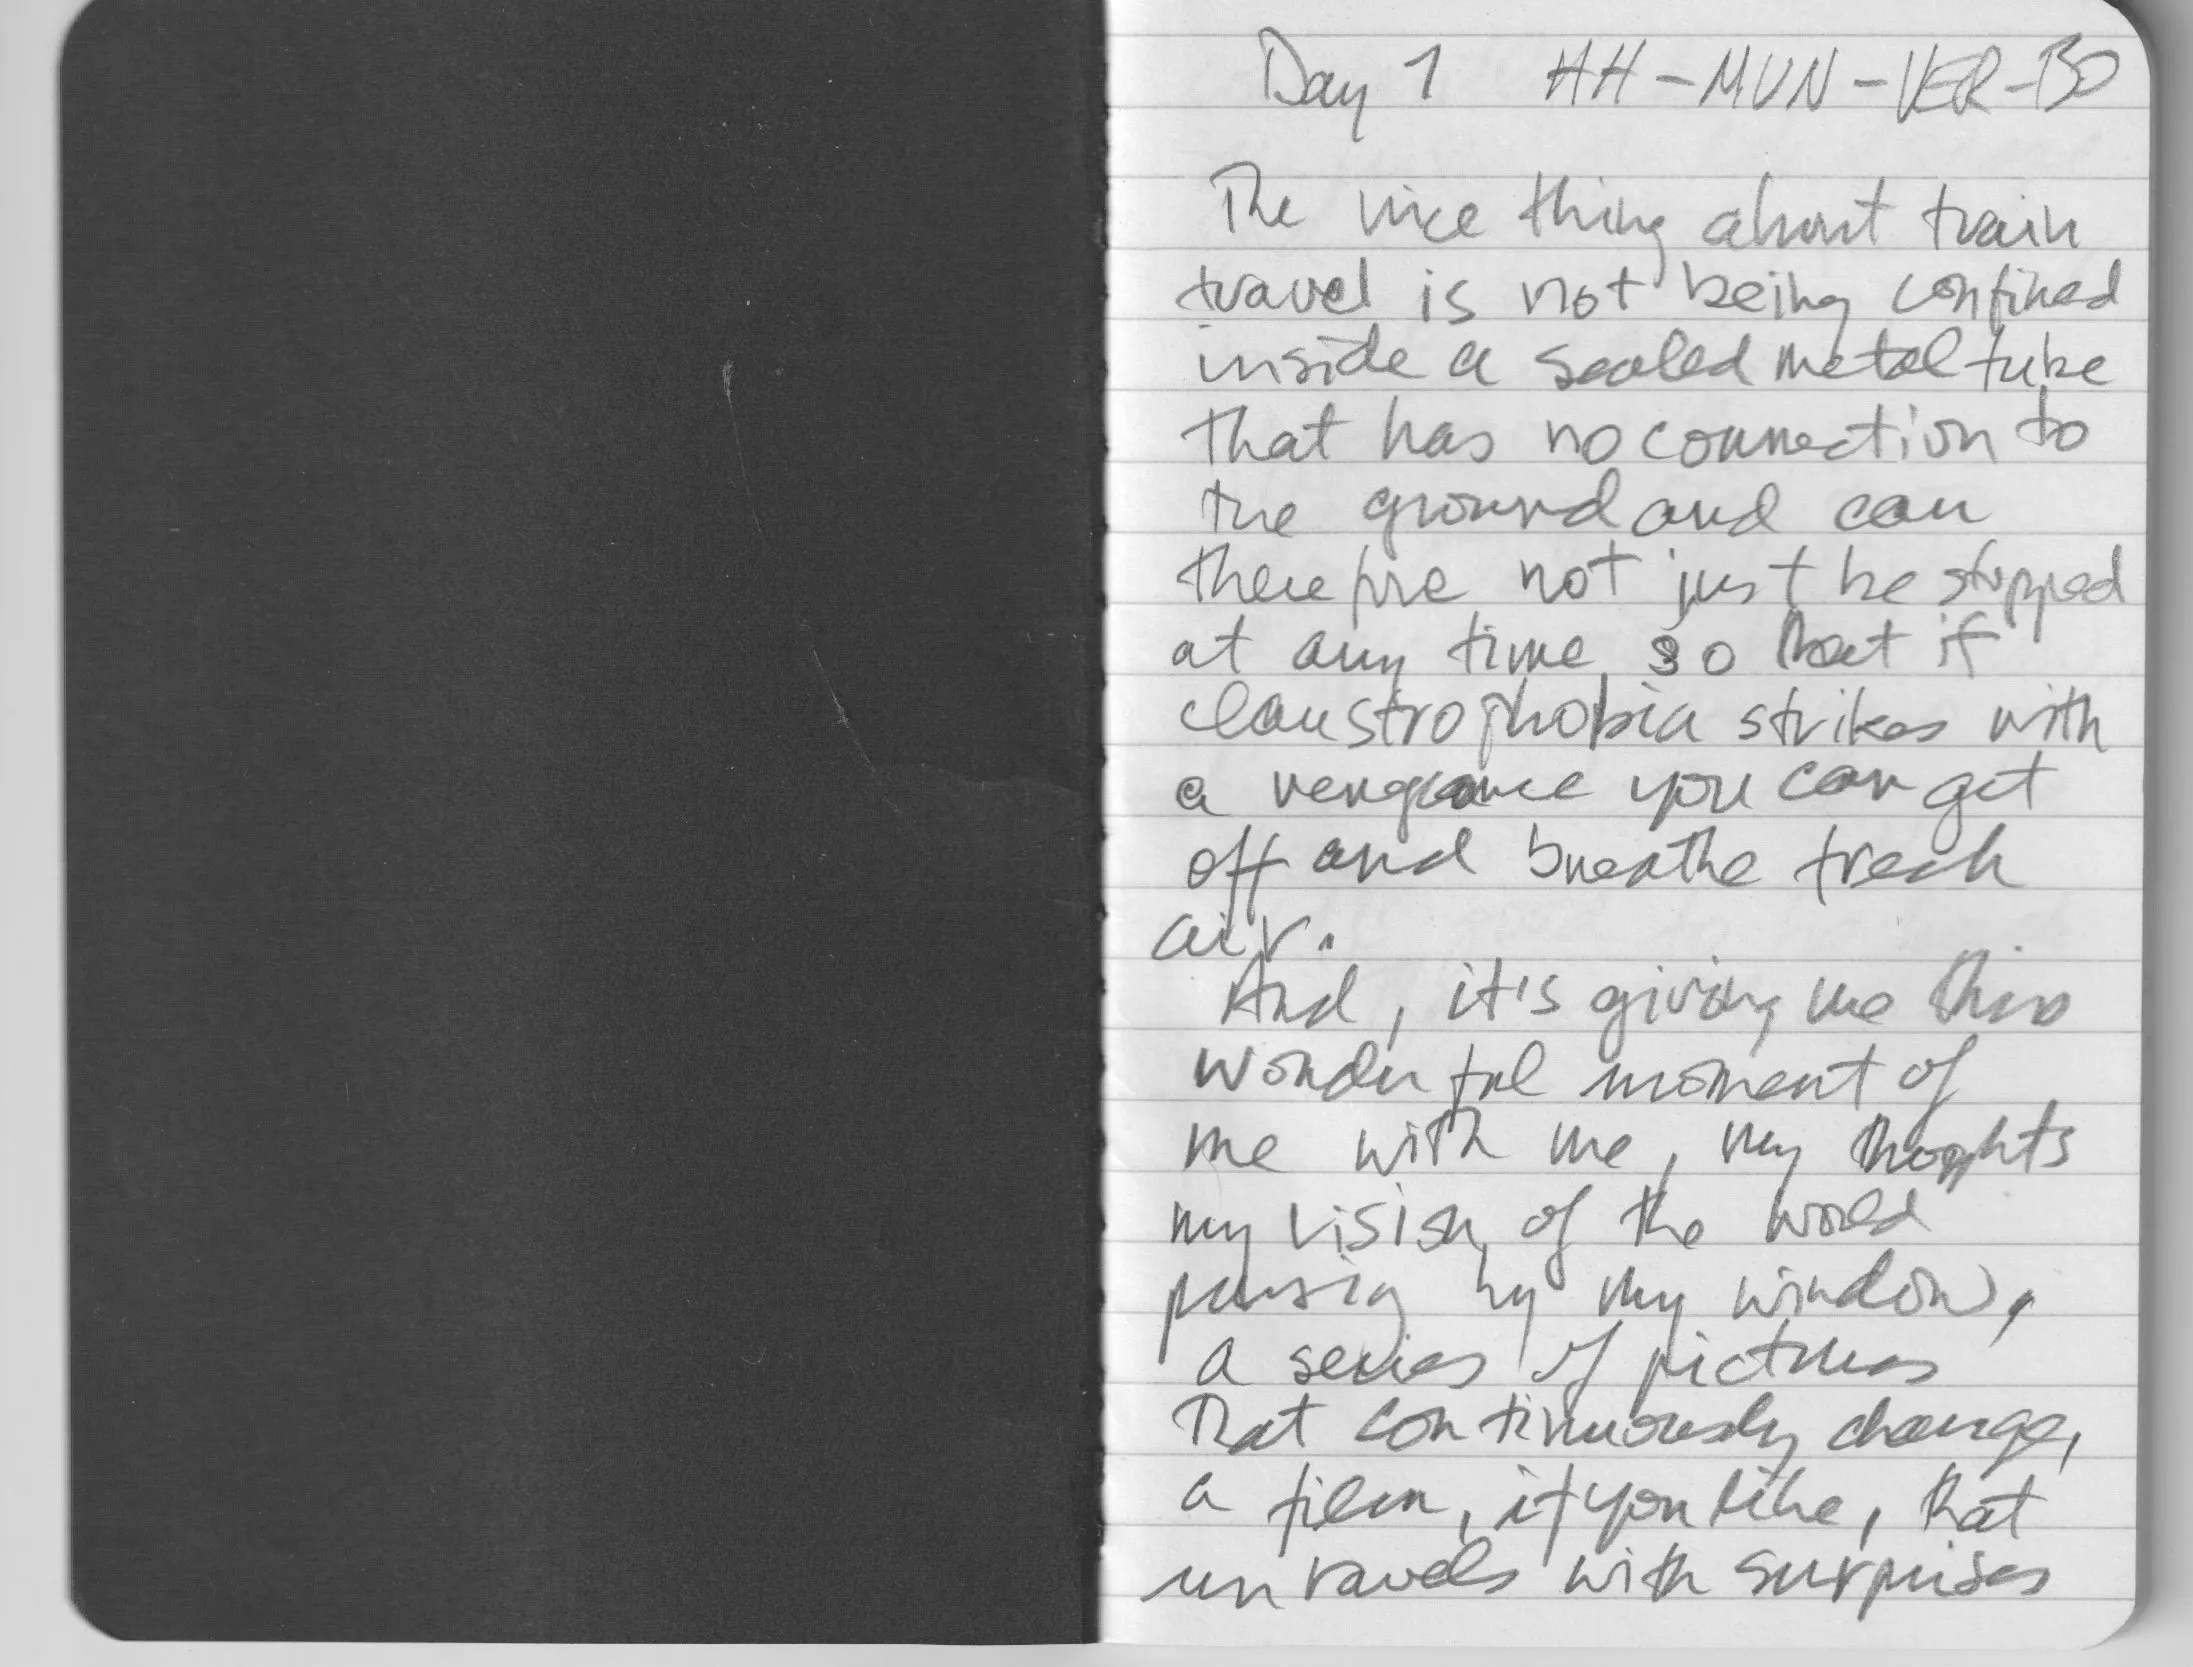 Day 1 HH-MUN-VER-BO
The nice thing about train
travel is not being confined
inside a sealed metal tube
that has no connection to
the ground and can
therefore not just be stopped
at any time, so that if
claustrophobia strikes with
a vengeance you can get
off and breathe fresh
air.
And, it's giving me this
wonderful moment of
me with me, my thoghts
my vision of the world
passig by my window,
a series of pictures
that continuously change,
a film, if you like, that
unravels with surprises